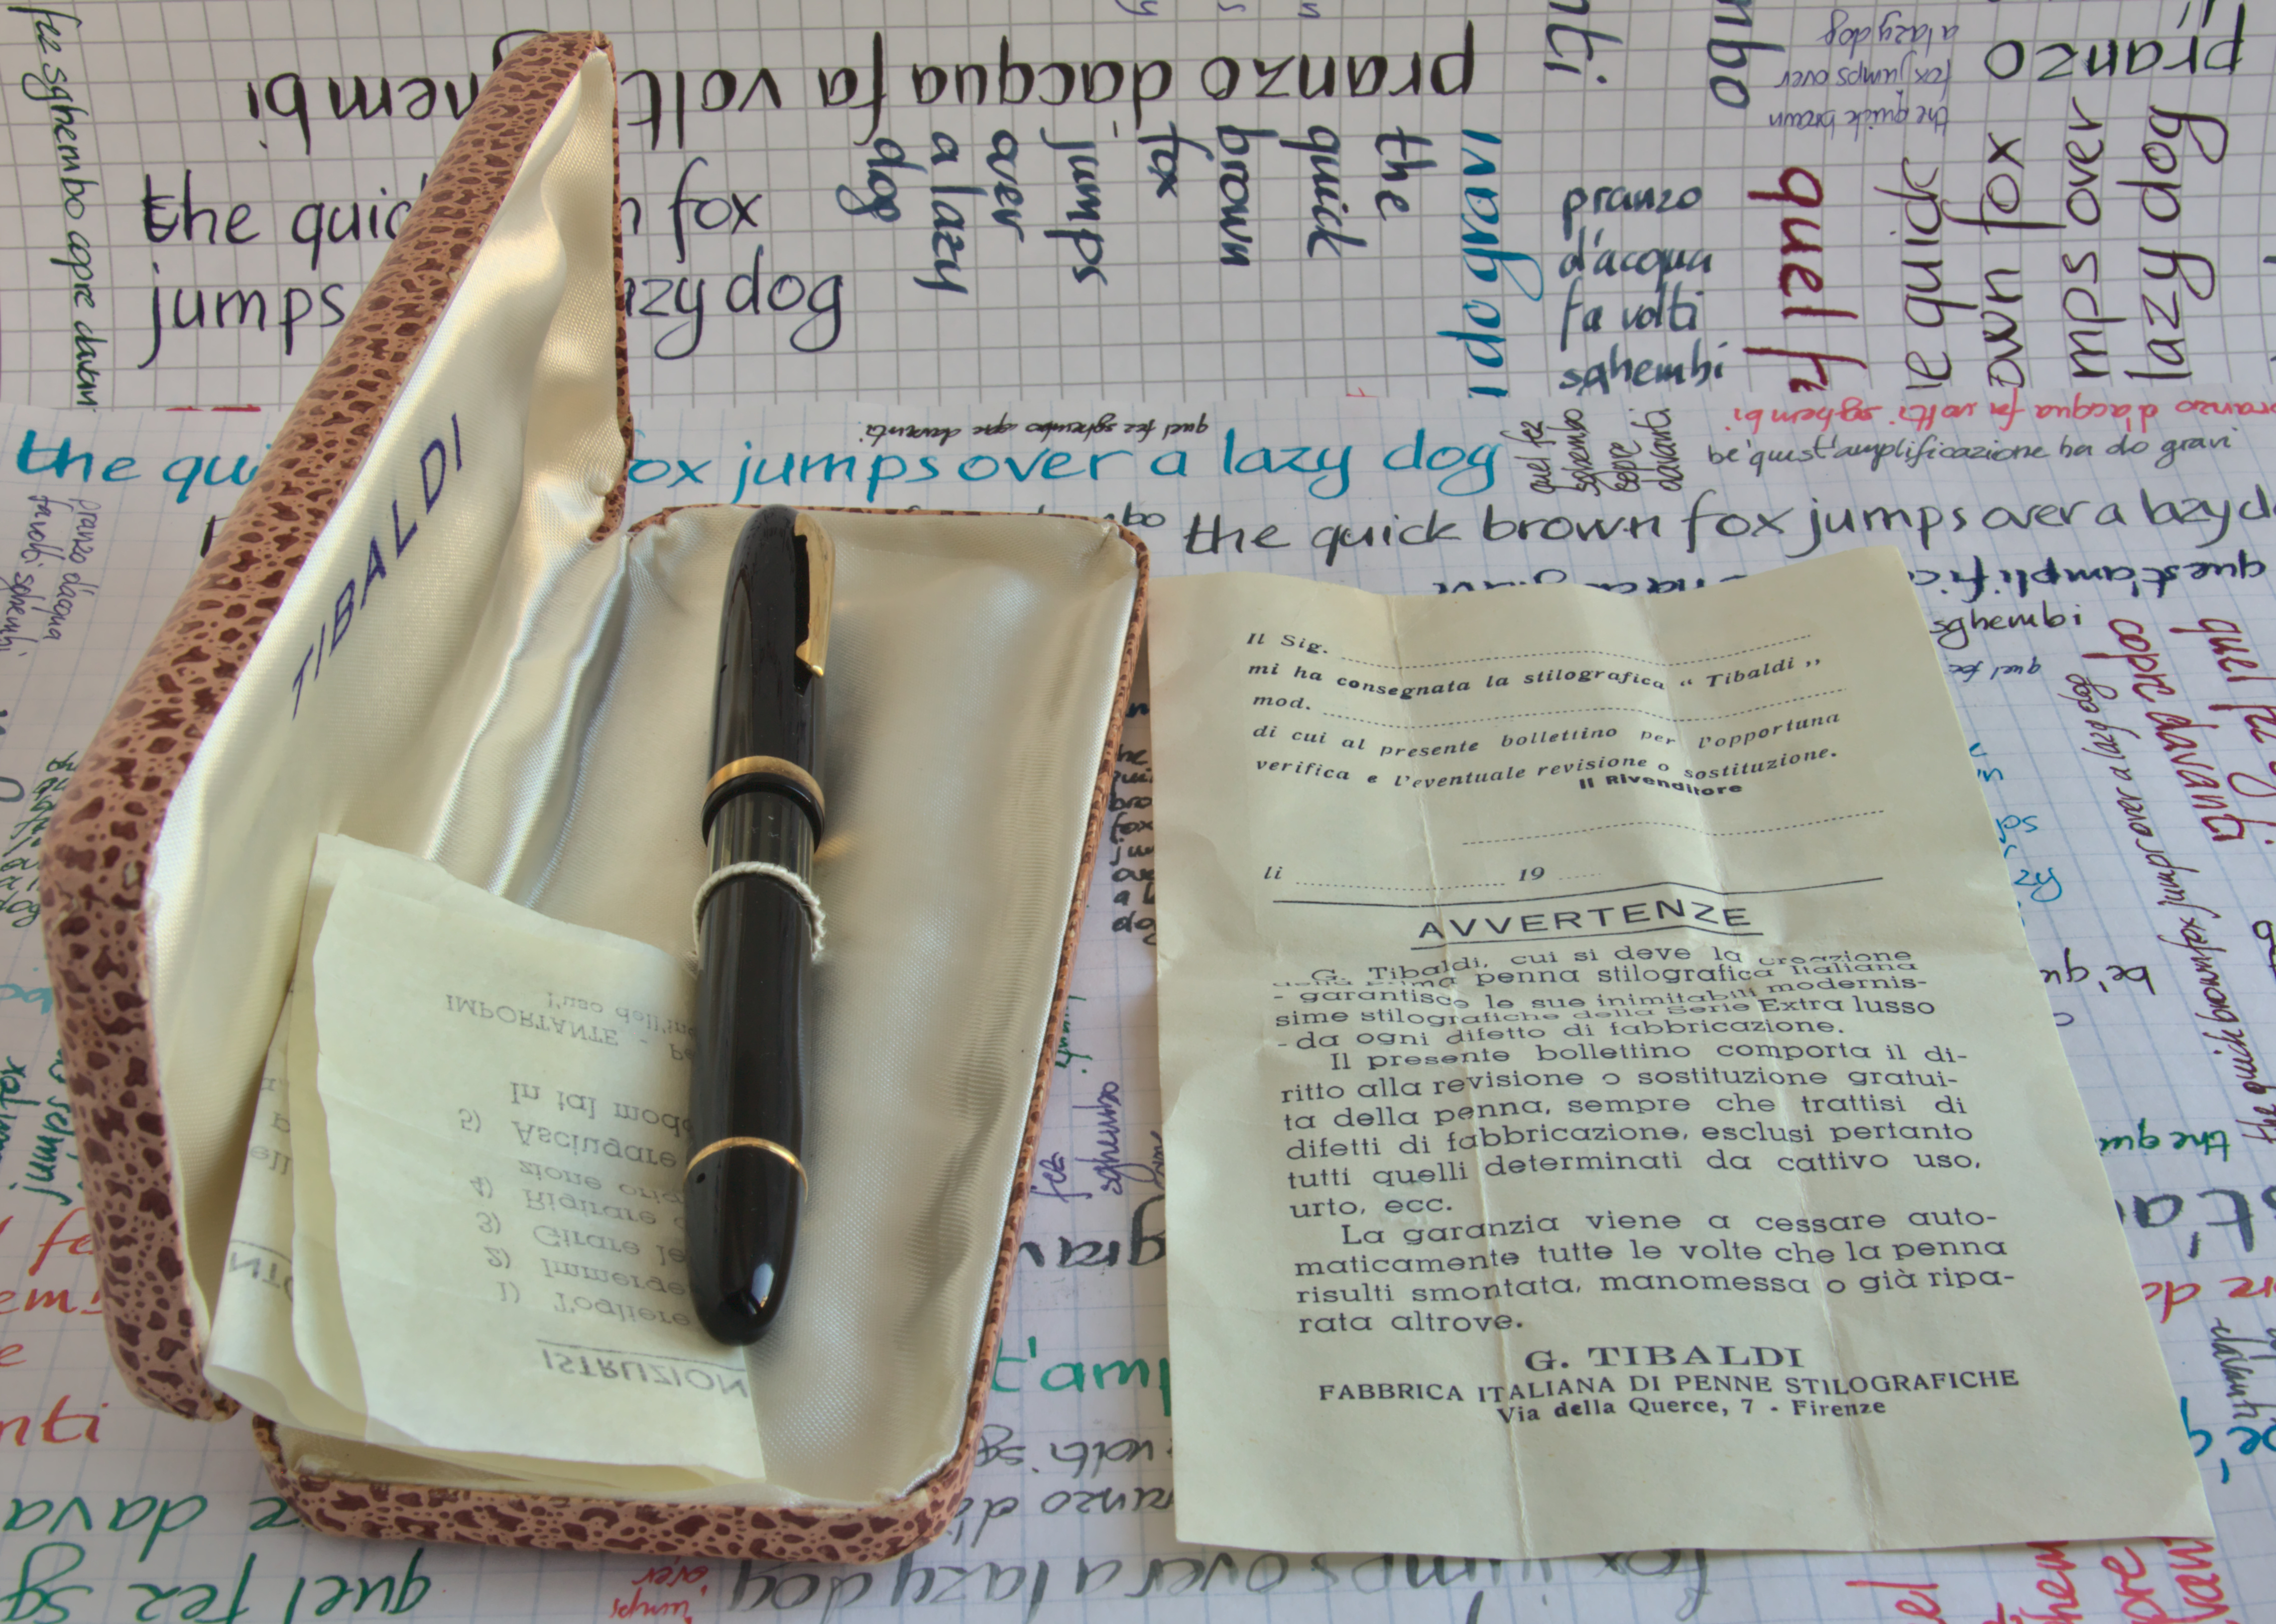 fez sghembo apre davanti
pranzo dacqua fa volt
hembi
the quic
n fox
jumps
azy dog
the
quick
brown
fox
jumps
over
a lazy
dog
i do gravi
nti
mbo
pranzo
d'acqua
fa volti
sghembi
quel f
the quick brown
fox jumps over
a lazy dog
pranzo
e quick
own fox
mps over
lazy dog
the qui
ox jumps over a lazy dog
quel fez sghembo apre davanti
quel fez
sghembo
apre
davanti
pranzo d'acqua fa volti sghembi
be' quest'amplificazione ha do gravi
the quick brown fox jumps over a lazy d
quest'amplific
sghembi
quel fez
pranzo dacqua
fa volti sghembi
TIBALDI
Il Sig.
mi ha consegnata la stilografica “ Tibaldi „
mod.
di cui al presente bollettino per l'opportuna
verifica e l'eventuale revisione o sostituzione.
Il Rivenditore
li 19
AVVERTENZE
G. Tibaldi, cui si deve la creazione
della prima penna stilografica Italiana
- garantisce le sue inimitabili modernis-
sime stilografiche della Serie Extra lusso
- da ogni difetto di fabbricazione.
Il presente bollettino comporta il di-
ritto alla revisione o sostituzione gratui-
ta della penna, sempre che trattisi di
difetti di fabbricazione, esclusi pertanto
tutti quelli determinati da cattivo uso,
urto, ecc.
La garanzia viene a cessare auto-
maticamente tutte le volte che la penna
risulti smontata, manomessa o già ripa-
rata altrove.
G. TIBALDI
FABBRICA ITALIANA DI PENNE STILOGRAFICHE
Via della Querce, 7 - Firenze
ISTRUZION
1) Togliere
2) Immerge
3) Girare le
4) Rigirare
zione orig
5) Asciugare
In tal modo
IMPORTANTE - Pe
l'uso dell'in
apre davanti
quel fez
the quick brown fox jumps over a lazy dog
be' qu
the qui
fez
sghembo
grav
t'amp
volti sg
pranzo d'a
fox jumps over a lazy dog
jumps
over
nti
e dava
quel fez sg